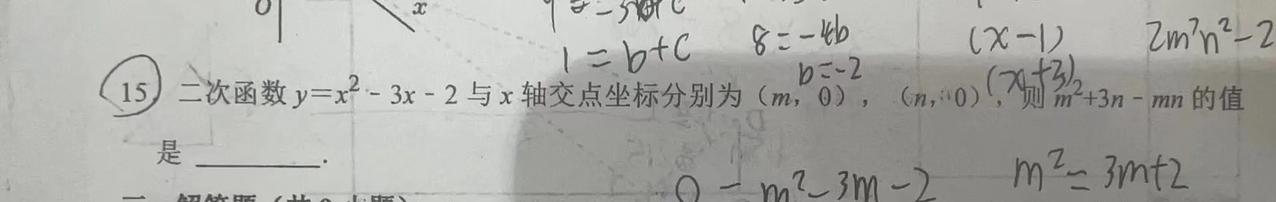 0 x
1=b+c 8=-4b (x-1) 2m³n²-2
b=-2 (x+3)
15 二次函数 y=x²-3x-2 与 x 轴交点坐标分别为（m，0），（n，0），则 m²+3n-mn 的值
是 ________.
0=m²-3m-2 m²=3m+2